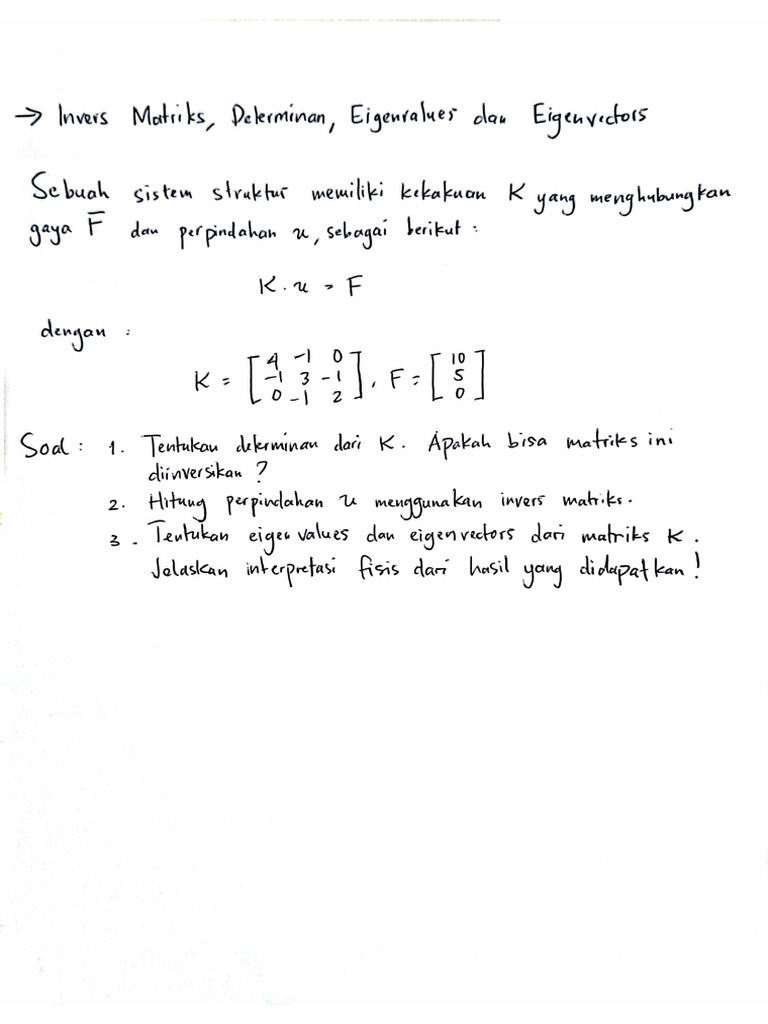 → Invers Matriks, Determinan, Eigenvalues dan Eigenvectors
Sebuah sistem struktur memiliki kekakuan K yang menghubungkan
gaya F̅ dan perpindahan u, sebagai berikut :
K . u = F
dengan :
K = [4 -1 0; -1 3 -1; 0 -1 2], F = [10; 5; 0]
Soal : 1. Tentukan determinan dari K. Apakah bisa matriks ini
diinversikan ?
2. Hitung perpindahan u menggunakan invers matriks.
3. Tentukan eigen values dan eigenvectors dari matriks K.
Jelaskan interpretasi fisis dari hasil yang didapatkan !